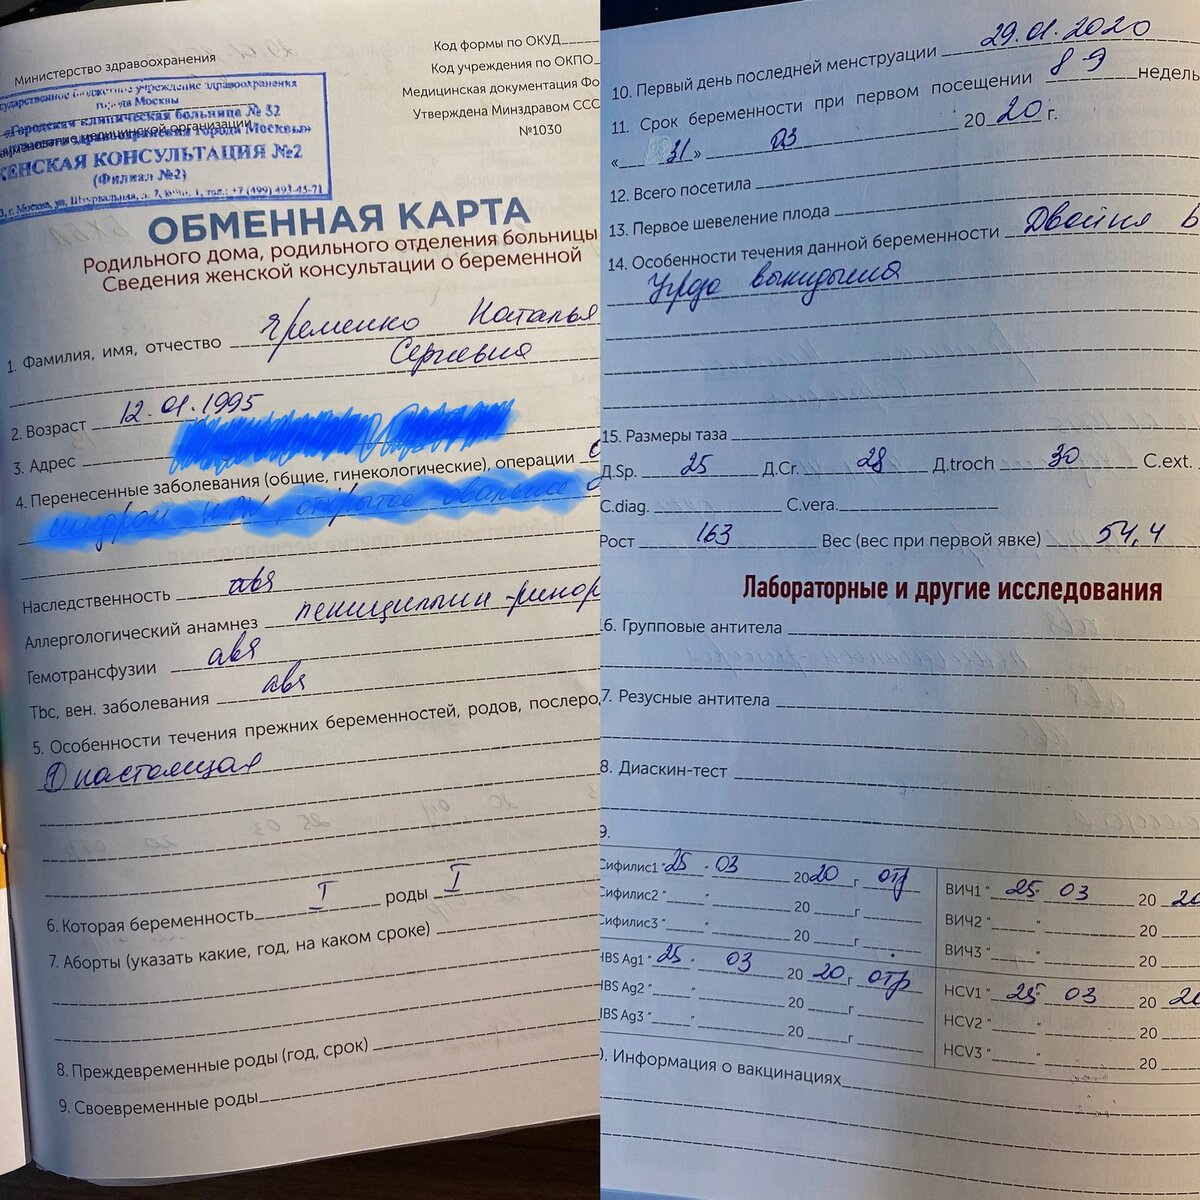 Министерство здравоохранения
Код формы по ОКУД
Код учреждения по ОКПО
Медицинская документация Фо
Утверждена Минздравом ССС
№1030
сударственное бюджетное учреждение здравоохранения
города Москвы
«Городская клиническая больница № 52
наименование медицинской организации
здравоохранения города Москвы»
ЖЕНСКАЯ КОНСУЛЬТАЦИЯ №2
(Филиал №2)
г. Москва, ул. 7, тел.: +7 (499) 493-45-71
ОБМЕННАЯ КАРТА
Родильного дома, родильного отделения больницы
Сведения женской консультации о беременной
1. Фамилия, имя, отчество Яременко Наталья
Сергеевна
2. Возраст 12.01.1995
3. Адрес
4. Перенесенные заболевания (общие, гинекологические), операции
синдром WPW, открытое овальное
Наследственность авя
Аллергологический анамнез пенициллин-
Гемотрансфузии авя
Tbc, вен. заболевания авя
5. Особенности течения прежних беременностей, родов, послеро
① настоящая
6. Которая беременность I роды I
7. Аборты (указать какие, год, на каком сроке)
8. Преждевременные роды (год, срок)
9. Своевременные роды
10. Первый день последней менструации 29.01.2020
11. Срок беременности при первом посещении 8-9 недель
« 31 » 03 20 20 г.
12. Всего посетила
13. Первое шевеление плода
14. Особенности течения данной беременности Двойня Б
Угроза выкидыша
15. Размеры таза
Д.Sp. 25 Д.Cr. 28 Д.troch 30 C.ext.
C.diag. C.vera.
Рост 163 Вес (вес при первой явке) 54,4
Лабораторные и другие исследования
6. Групповые антитела
7. Резусные антитела
8. Диаскин-тест
9.
Сифилис1 "25 " 03 2020 г отр
Сифилис2 " " 20 г
Сифилис3 " " 20 г
HBS Ag1 " 25 " 03 20 20 г отр
HBS Ag2 " " 20 г
HBS Ag3 " " 20 г
ВИЧ1 " 25 " 03 20 20
ВИЧ2 " " 20
ВИЧ3 " " 20
HCV1 " 25 " 03 20 20
HCV2 " " 20
HCV3 " " 20
). Информация о вакцинациях